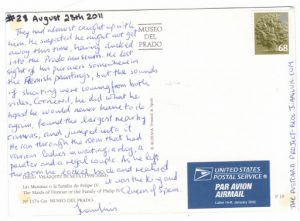 #28 August 28th 2011
They had almost caught up with
him. He suspected he might not get
away this time, having ducked
into the Prado museum. He lost
sight of his pursuers somewhere in
the Flemish paintings, but the sounds
of shouting were coming from both
sides. Cornered, he did what he
hoped he would never have to do
again. Found the largest nearby
canvas, and jumped into it.
He ran through the room that had
various ladies in waiting, a dog, a
painter and a royal couple. As he left
the room he looked back and realised
it was the King and
Queen of Spain
MUSEO
DEL
PRADO
68
Las Meninas o la familia de Felipe IV
The Maids of Honor or the Family of Philip IV
Nº 1174 Cat. MUSEO DEL PRADO
UNITED STATES
POSTAL SERVICE
PAR AVION
AIRMAIL
THE POSTCARD PROJECT.